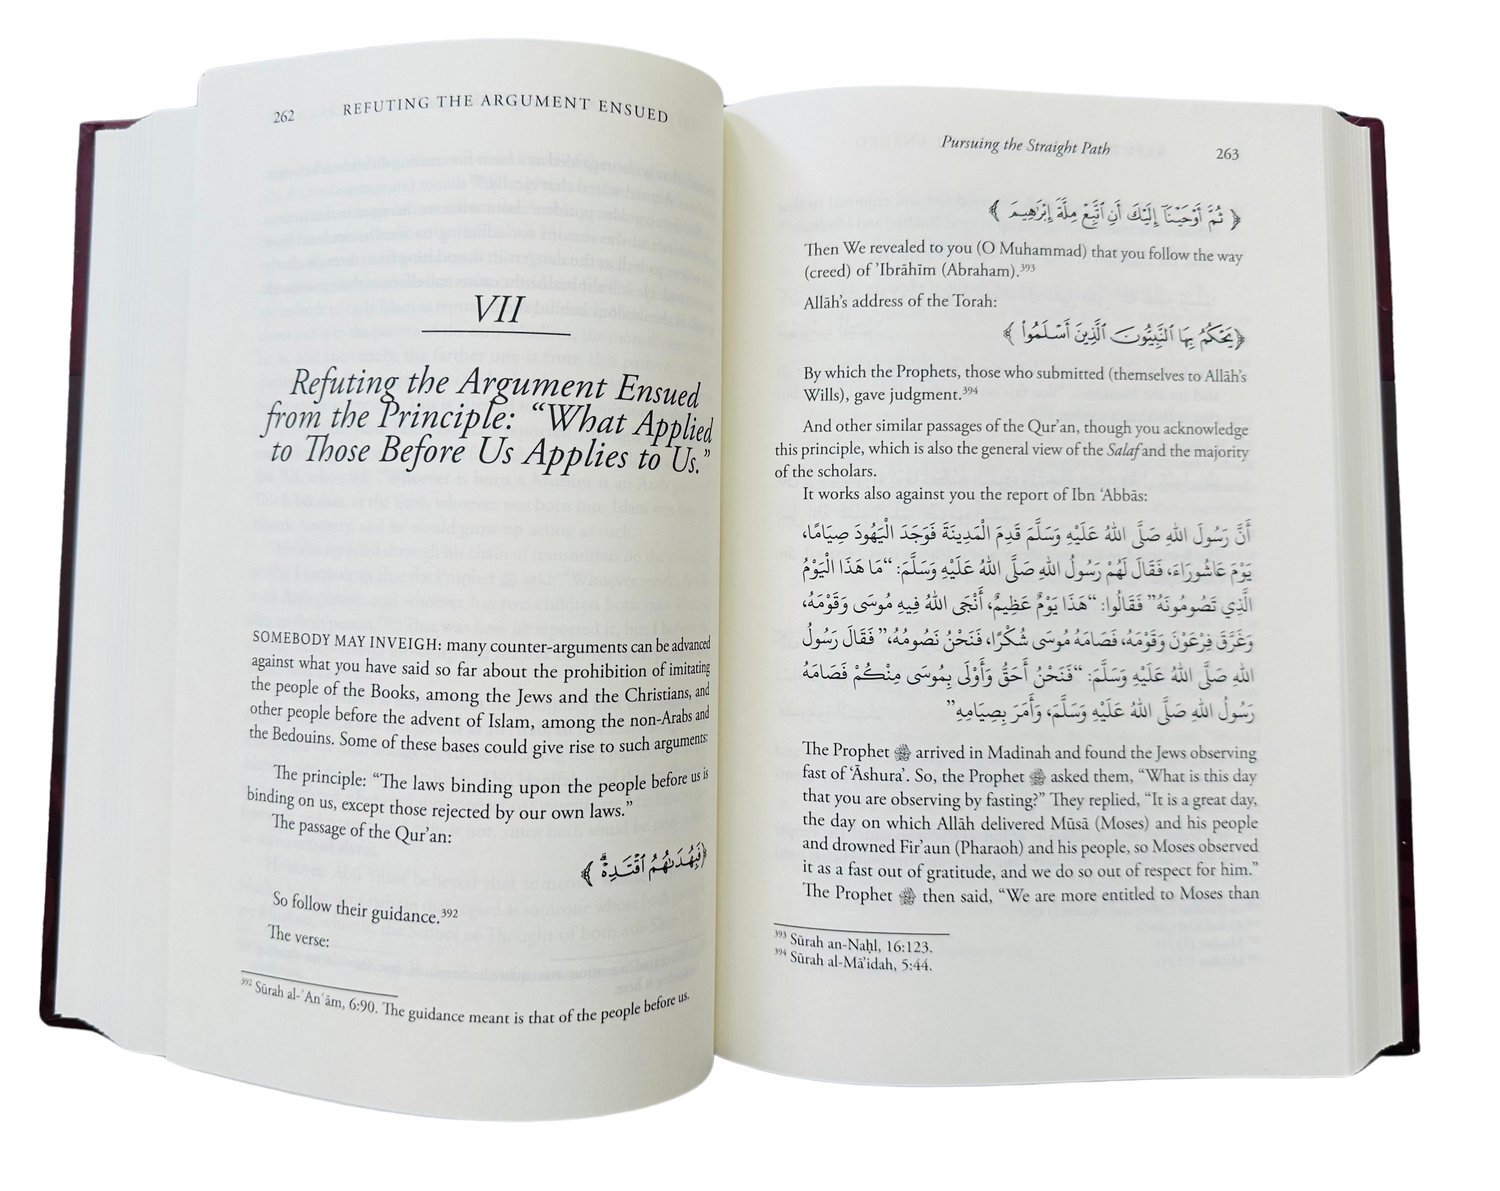 262 REFUTING THE ARGUMENT ENSUED
VII
Refuting the Argument Ensued
from the Principle: “What Applied
to Those Before Us Applies to Us.”
SOMEBODY MAY INVEIGH: many counter-arguments can be advanced
against what you have said so far about the prohibition of imitating
the people of the Books, among the Jews and the Christians, and
other people before the advent of Islam, among the non-Arabs and
the Bedouins. Some of these bases could give rise to such arguments:
The principle: “The laws binding upon the people before us is
binding on us, except those rejected by our own laws.”
The passage of the Qur’an:
﴿فَبِهُدَىٰهُمُ ٱقْتَدِهْ ۗ﴾
So follow their guidance.³⁹²
The verse:
³⁹² Sūrah al-ʿAnʿām, 6:90. The guidance meant is that of the people before us.
Pursuing the Straight Path 263
﴿ثُمَّ أَوْحَيْنَآ إِلَيْكَ أَنِ ٱتَّبِعْ مِلَّةَ إِبْرَٰهِيمَ﴾
Then We revealed to you (O Muhammad) that you follow the way
(creed) of ’Ibrāhīm (Abraham).³⁹³
Allāh’s address of the Torah:
﴿يَحْكُمُ بِهَا ٱلنَّبِيُّونَ ٱلَّذِينَ أَسْلَمُوا۟﴾
By which the Prophets, those who submitted (themselves to Allāh’s
Wills), gave judgment.³⁹⁴
And other similar passages of the Qur’an, though you acknowledge
this principle, which is also the general view of the Salaf and the majority
of the scholars.
It works also against you the report of Ibn ‘Abbās:
أَنَّ رَسُولَ اللهِ صَلَّى اللهُ عَلَيْهِ وَسَلَّمَ قَدِمَ الْمَدِينَةَ فَوَجَدَ الْيَهُودَ صِيَامًا،
يَوْمَ عَاشُورَاءَ، فَقَالَ لَهُمْ رَسُولُ اللهِ صَلَّى اللهُ عَلَيْهِ وَسَلَّمَ: “مَا هَذَا الْيَوْمُ
الَّذِي تَصُومُونَهُ” فَقَالُوا: “هَذَا يَوْمٌ عَظِيمٌ، أَنْجَى اللهُ فِيهِ مُوسَى وَقَوْمَهُ،
وَغَرَّقَ فِرْعَوْنَ وَقَوْمَهُ، فَصَامَهُ مُوسَى شُكْرًا، فَنَحْنُ نَصُومُهُ،” فَقَالَ رَسُولُ
اللهِ صَلَّى اللهُ عَلَيْهِ وَسَلَّمَ: “فَنَحْنُ أَحَقُّ وَأَوْلَى بِمُوسَى مِنْكُمْ فَصَامَهُ
رَسُولُ اللهِ صَلَّى اللهُ عَلَيْهِ وَسَلَّمَ، وَأَمَرَ بِصِيَامِهِ”
The Prophet ﷺ arrived in Madinah and found the Jews observing
fast of ‘Āshura’. So, the Prophet ﷺ asked them, “What is this day
that you are observing by fasting?” They replied, “It is a great day,
the day on which Allāh delivered Mūsā (Moses) and his people
and drowned Fir’aun (Pharaoh) and his people, so Moses observed
it as a fast out of gratitude, and we do so out of respect for him.”
The Prophet ﷺ then said, “We are more entitled to Moses than
³⁹³ Sūrah an-Naḥl, 16:123.
³⁹⁴ Sūrah al-Mā’idah, 5:44.